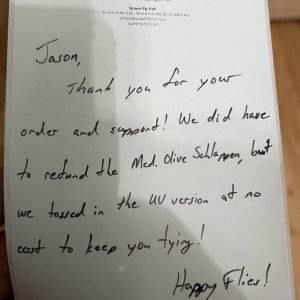 Jason,
Thank you for your
order and support! We did have
to refund the Med. Olive Schlappen, but
we tossed in the UV version at no
cost to keep you tying!
Happy Flies!